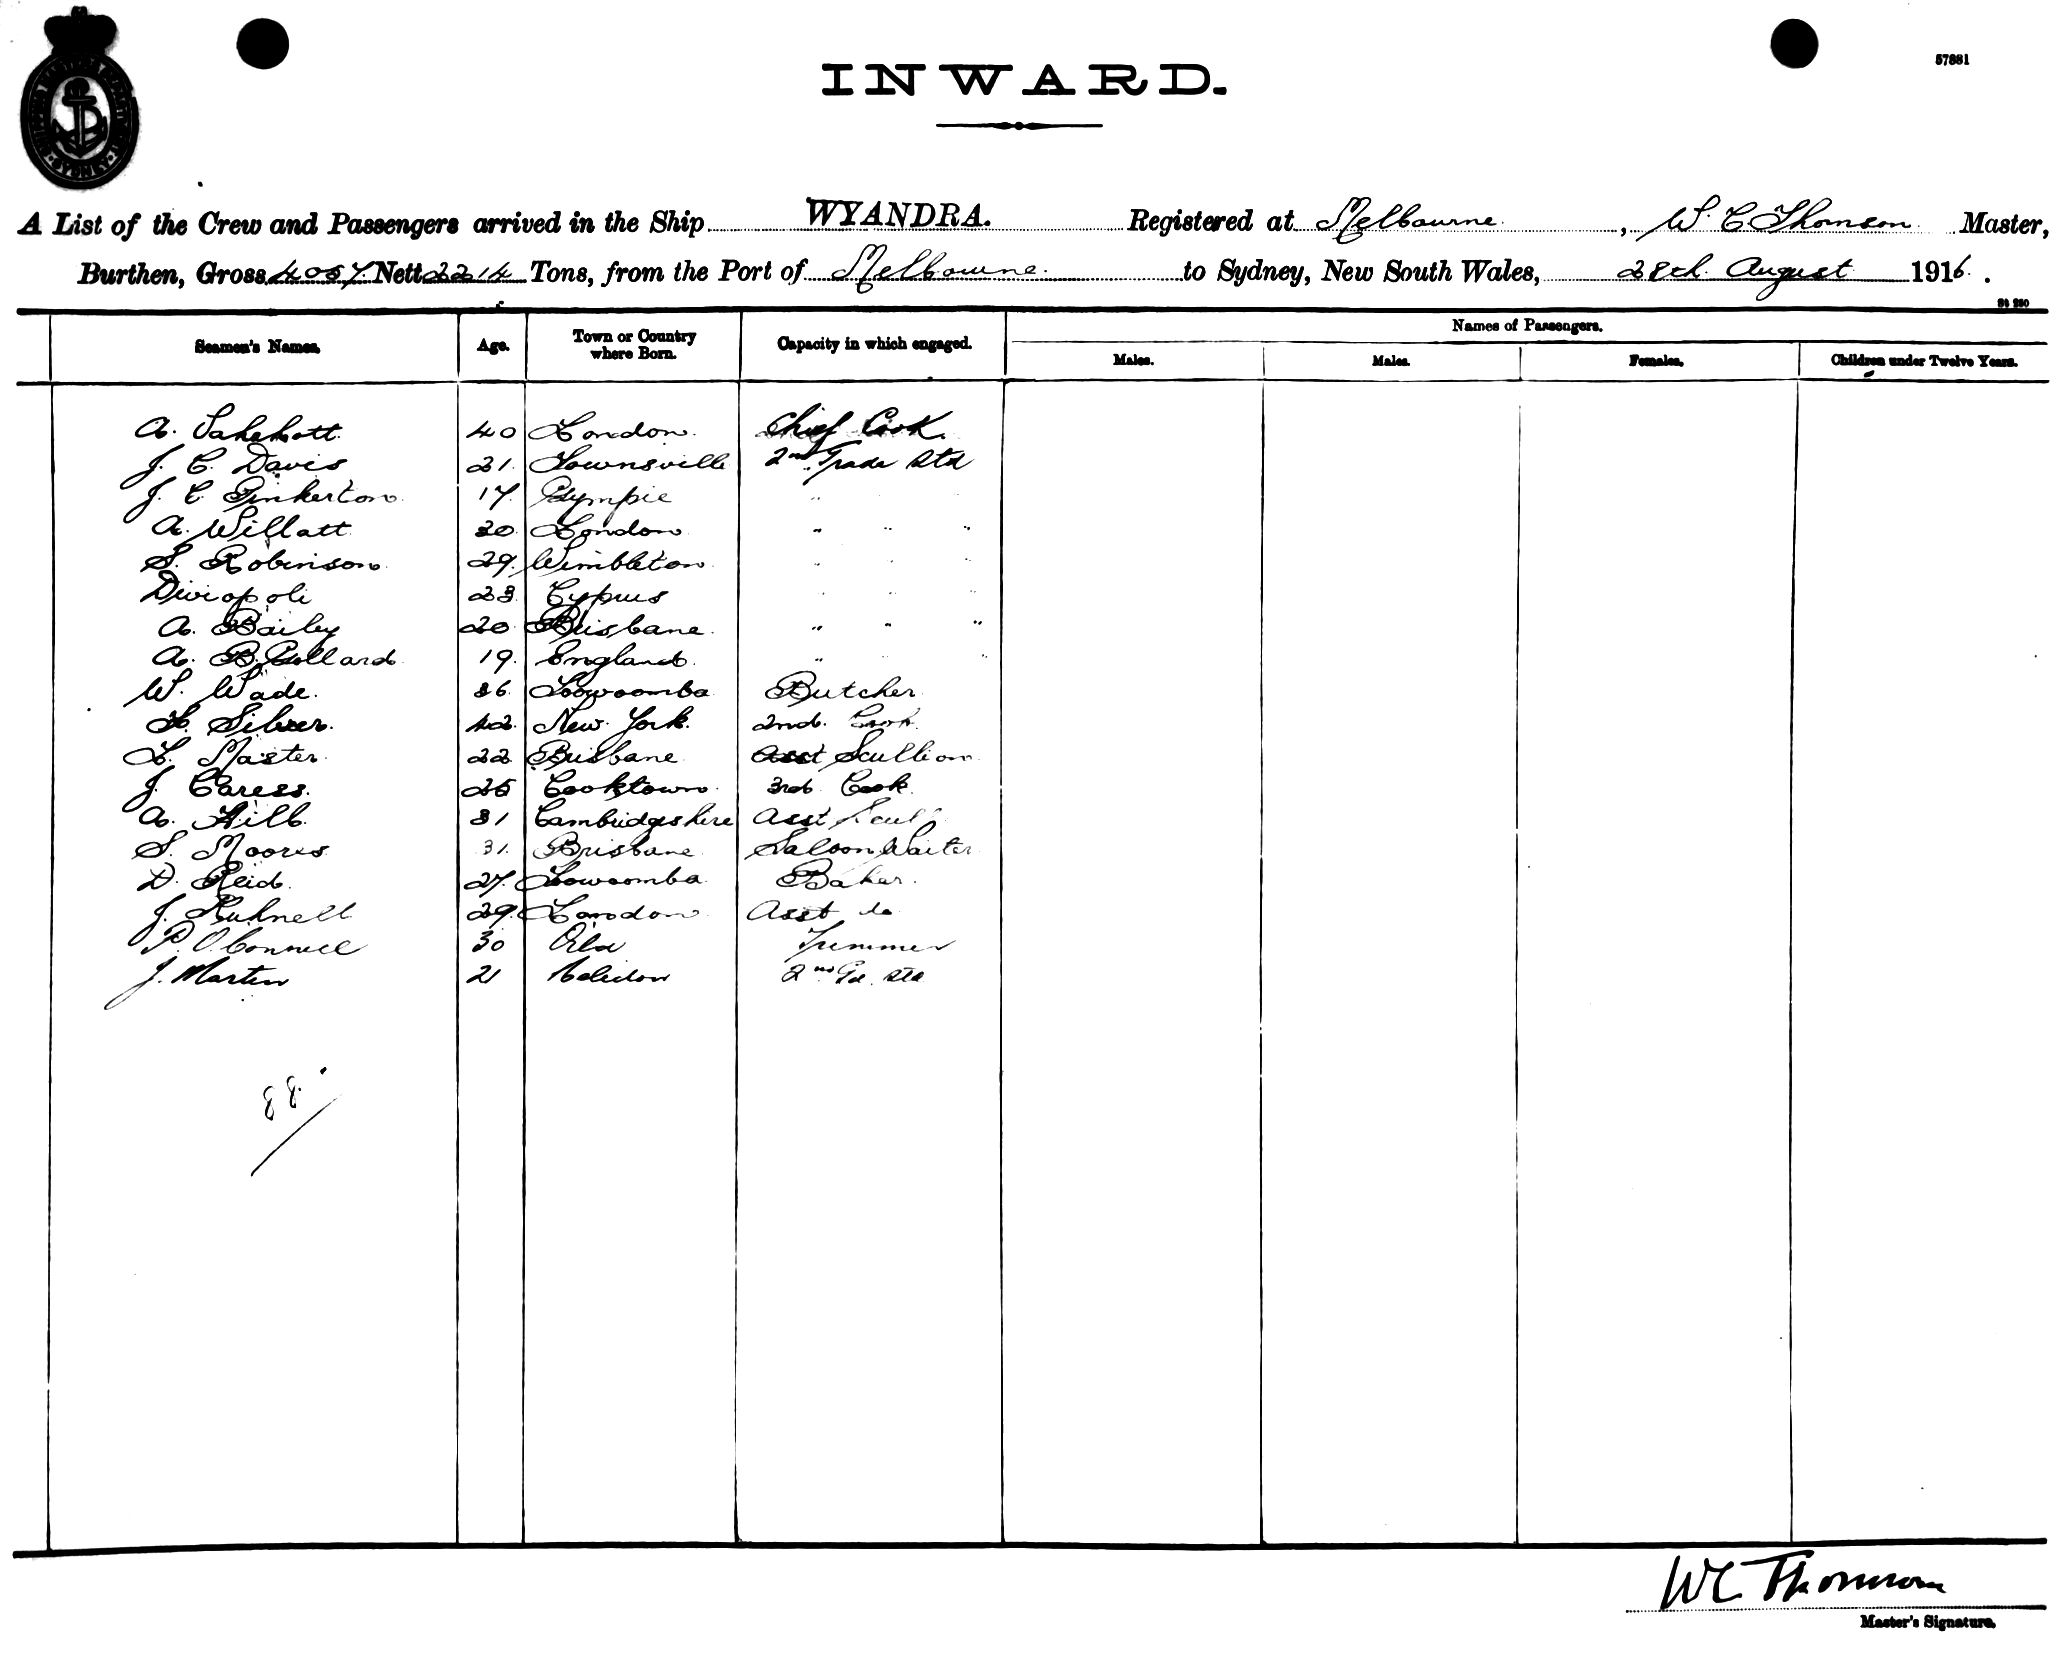 57881
INWARD.
A List of the Crew and Passengers arrived in the Ship WYANDRA. Registered at Melbourne, W. C Thomson Master,
Burthen, Gross 4057 Nett 2214 Tons, from the Port of Melbourne to Sydney, New South Wales, 28th August 1916.
St 280
Seamen's Names. Age. Town or Country where Born. Capacity in which engaged. Names of Passengers.
Males. Males. Females. Children under Twelve Years.
A. 40 London. Chief Cook.
J. C. Davis 21. Townsville 2nd Grade Std
J. C. Pinkerton. 17. Gympie "
A. Willatt 30. London " " "
S. Robinson 29. Wimbleton " "
23. Cyprus " " "
A. Bailey 20. Brisbane. " " "
A. B. Pollard 19. England. " "
W. Wade. 36. Toowoomba Butcher.
Silver. 42. New York. 2nd. Cook
L. Master. 22. Brisbane Asst Scullion
J. Caress. 25 Cooktown. 3rd Cook
A. Hill. 31 Cambridgeshire Asst Scull
S. Moores 31. Brisbane Saloon Waiter
D. Reid. 27. Toowoomba. Baker.
J. 29. London Asst do
P. O'Connell 30 Qld Trimmer
J. Martin 21 2nd Gd. Std
88.
WC Thomson
Master's Signature.